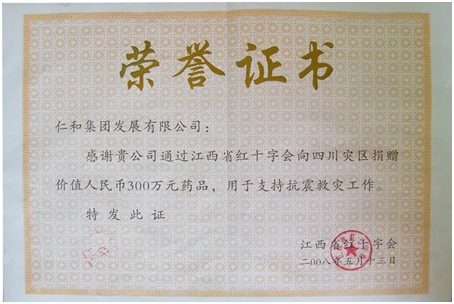 荣誉证书
仁和集团发展有限公司：
感谢贵公司通过江西省红十字会向四川灾区捐赠
价值人民币300万元药品，用于支持抗震救灾工作。
特发此证
江西省红十字会
二00八年五月十三日